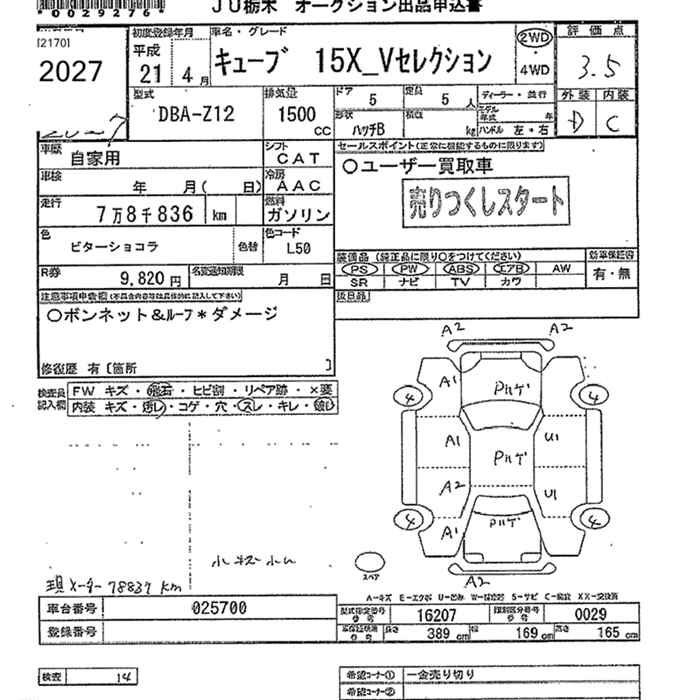 *0029276*
JU栃木 オークション出品申込書
[2170]
2027
初度登録年月
平成
21 4月
車名・グレード
キューブ 15X_Vセレクション
2WD
・
4WD
評価点
3.5
外装 内装
D C
型式
DBA-Z12
排気量
1500
cc
ドア
5
定員
5人
ディーラー・並行
形状
ハッチB
積載
kg
モデル
年式 年
ハンドル 左・右
車歴
自家用
シフト
CAT
車検
年 月( 日)
冷房
AAC
走行
7万8千836 km
燃料
ガソリン
色
ビターショコラ
色替
色コード
L50
R券
9,820円
名変通知期限
月 日
セールスポイント(正常に機能するものに限ります)
○ユーザー買取車
売りつくしスタート
装備品(純正品に限り○をつけてください)
新車保証書
PS PW ABS エアB AW
有・無
SR ナビ TV カワ
注意事項申告欄(不具合内容等は具体的に記入して下さい)
○ボンネット&ルーフ*ダメージ
修復歴 有〔箇所 〕
検査員
記入欄
FW キズ・飛石・ヒビ割・リペア跡・×要
内装 キズ・汚レ・コゲ・穴・スレ・キレ・破レ
A2 A2
A1
A1
A2
A1
U1
U1
A2
4 4
4 4
スペア
小キズ小凹
現メーター78837km
A-キズ E-エクボ U-凹み W-補修跡 S-サビ C-腐食 XX-交換済
車台番号
025700
登録番号
型式指定番号
16207
類別区分番号
0029
長さ 389cm
幅 169cm
高さ 165cm
検査 14
希望コーナー① 一金売り切り
希望コーナー②